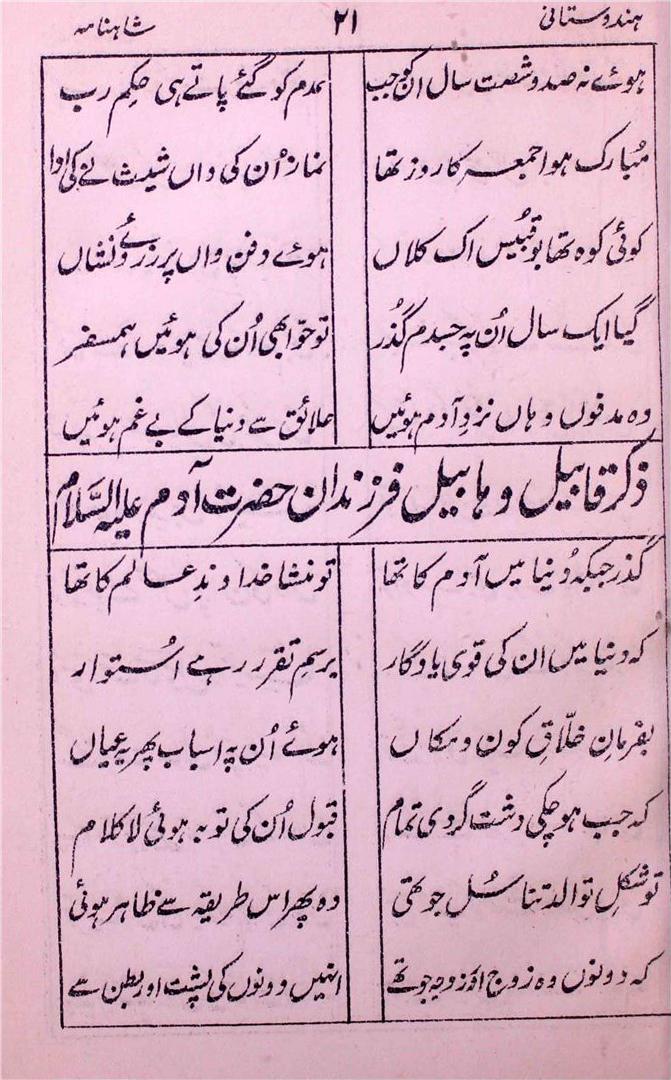 ہندوستانی ۲۱ شاہنامہ
ہوئے نہ صد و شصت سال ان کو جب عدم کو گئے پاتے ہی حکم رب
مبارک ہوا جمعہ کا روز تھا نماز اُن کی واں شیث نے کی ادا
کوئی کوہ تھا بو قبیس اک کلاں ہوئے دفن واں پر زروئے نشاں
گیا ایک سال اُن پہ جسدم گذر تو حوّا بھی اُن کی ہوئیں ہمسفر
وہ مدفوں وہاں نزدِ آدم ہوئیں علائق سے دنیا کے بے غم ہوئیں
ذکر قابیل و ہابیل فرزندان حضرت آدم علیہ السّلام
گذر جبکہ دُنیا میں آدم کا تھا تو منشا خداوندِ عالم کا تھا
کہ دنیا میں ان کی قوی یادگار برسمِ تقرر رہے اُستوار
بفرمانِ خلّاقِ کون و مکاں ہوئے اُن پہ اسباب پھر یہ عیاں
کہ جب ہو چکی دشت گردی تمام قبول اُن کی توبہ ہوئی لا کلام
تو شکلِ توالد تناسُل جو تھی وہ پھر اس طریقہ سے ظاہر ہوئی
کہ دونوں وہ زوج اور زوجہ جو تھے انہیں دونوں کی پشت اور بطن سے